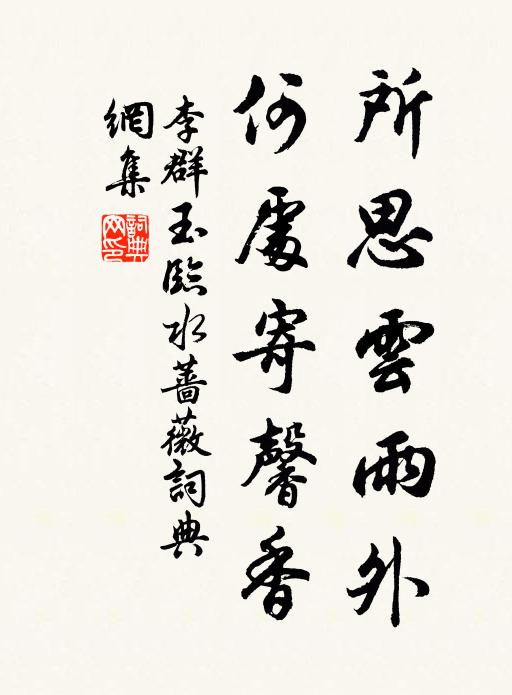 所思雲雨外
何處寄馨香
李群玉臨水薔薇詞典
網集
詞典网印